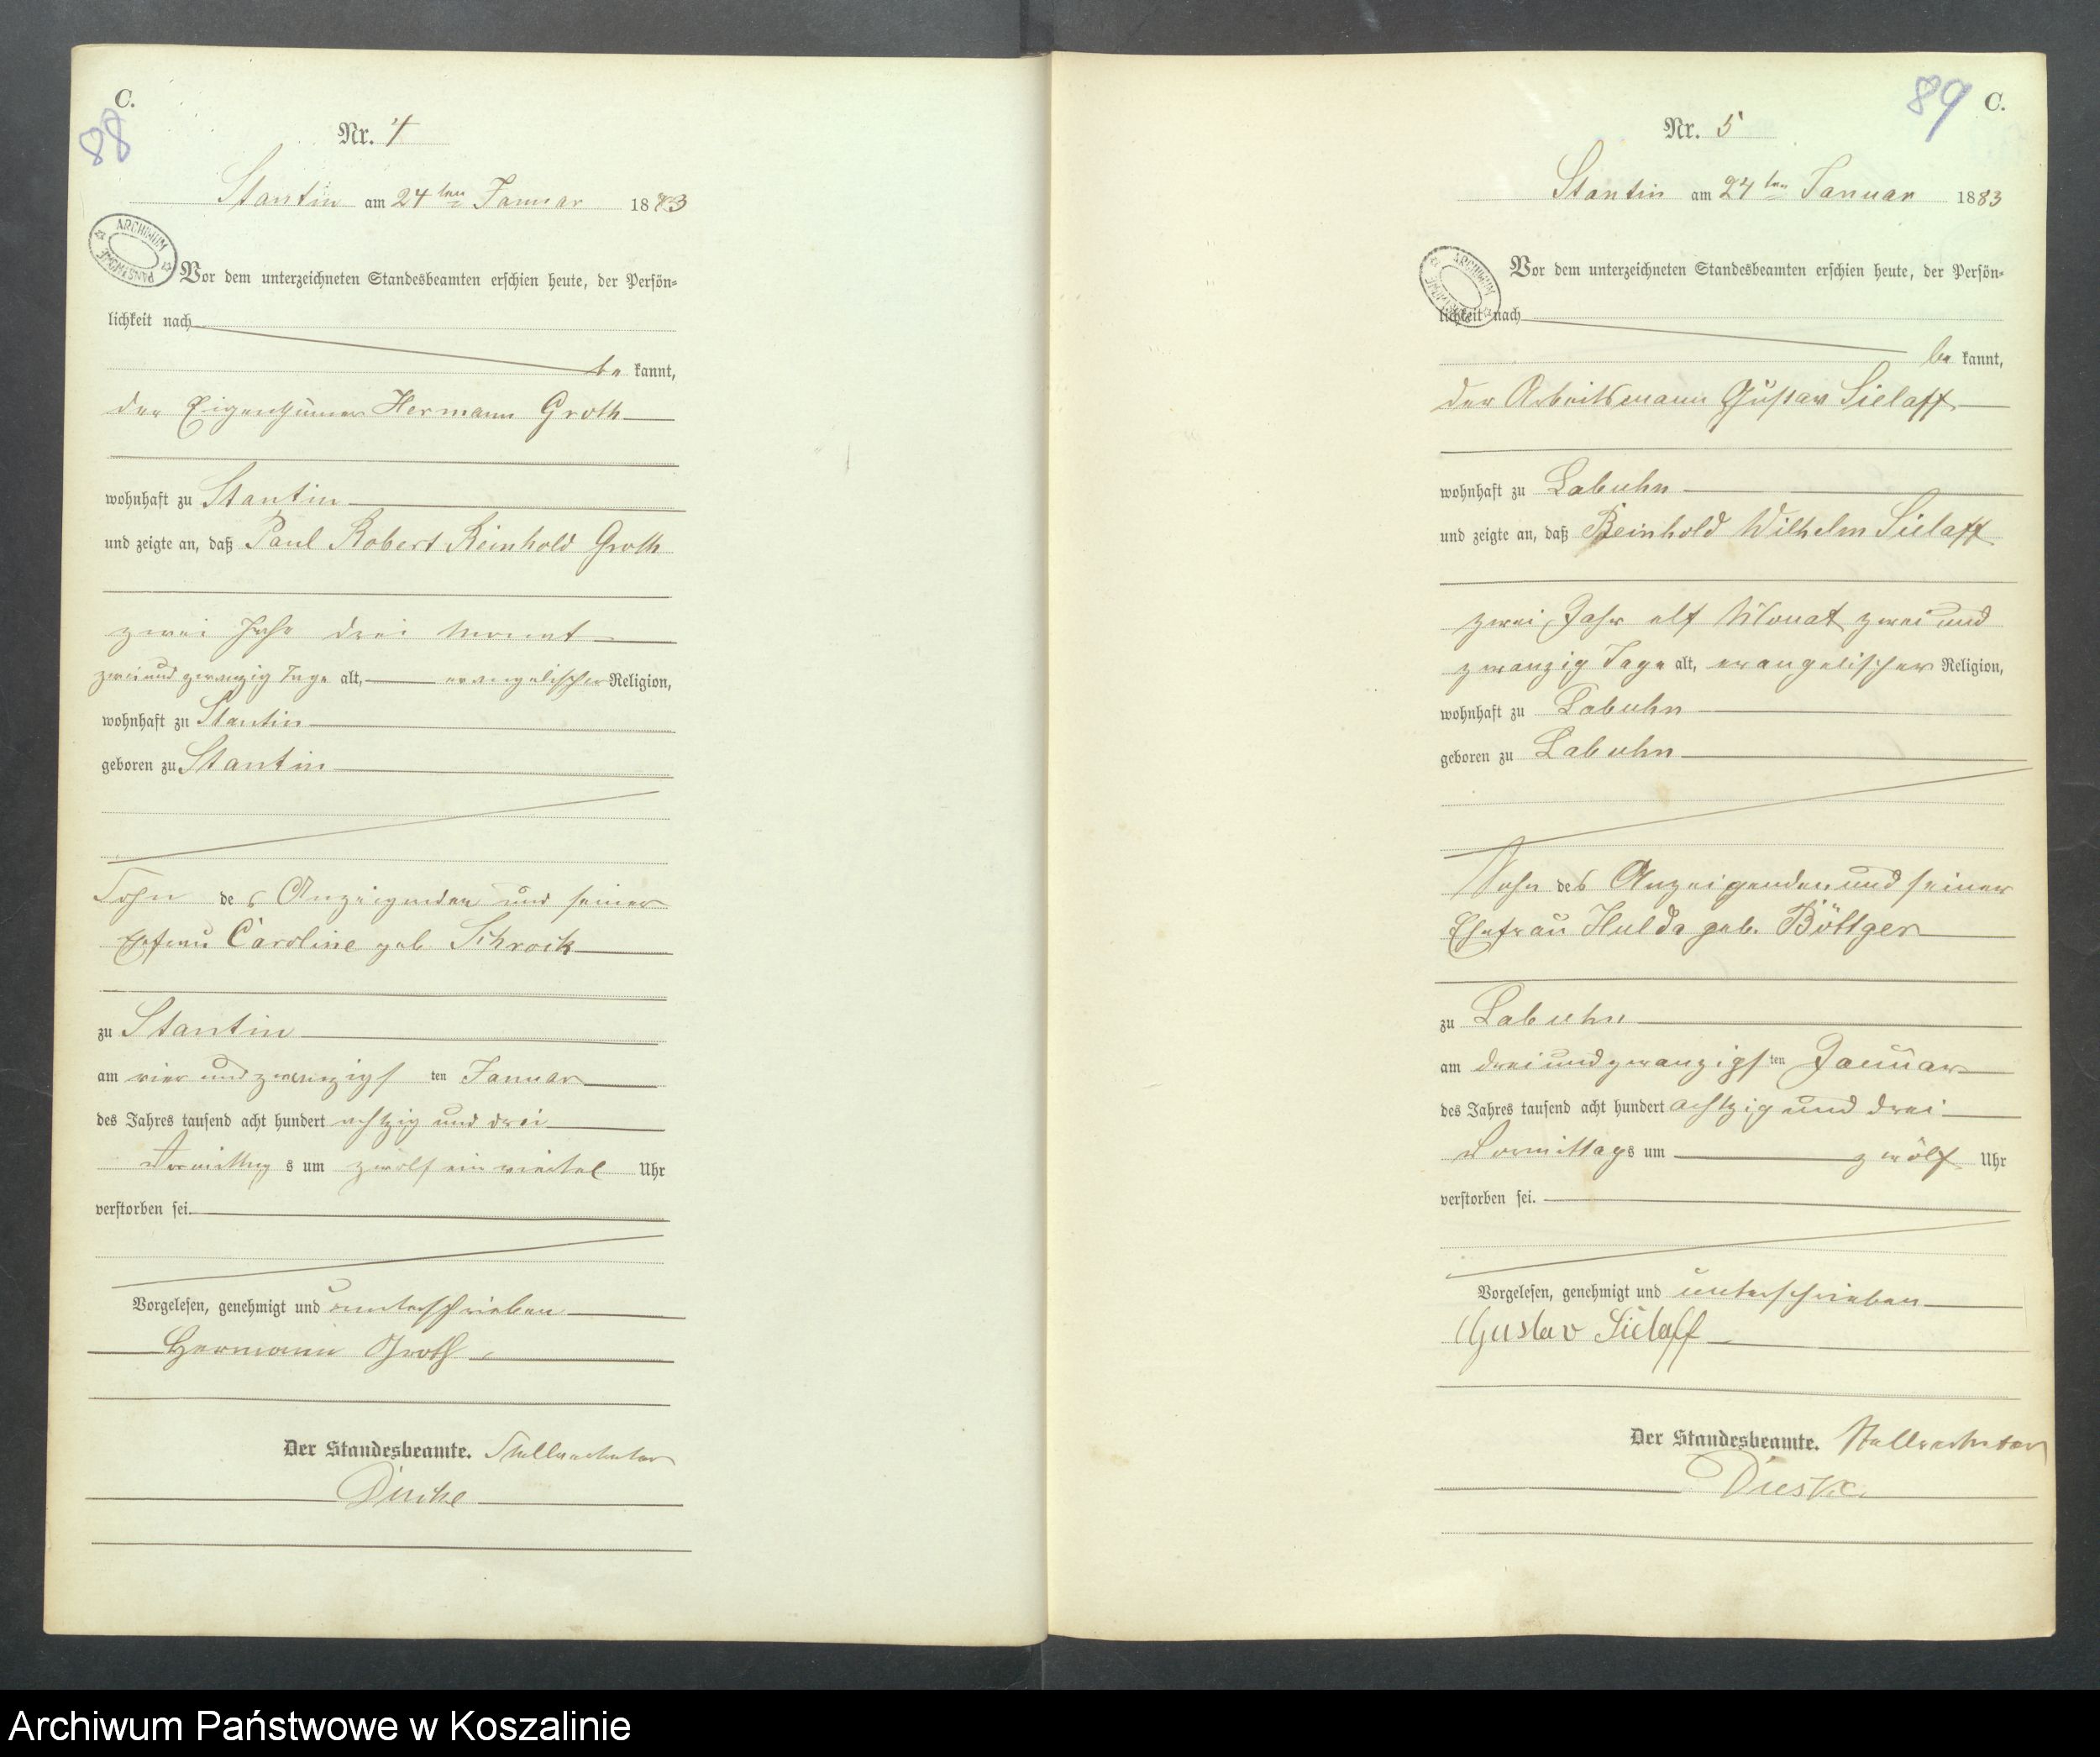 C.
88
Nr. 4
Stantin am 24ten Januar 1883
ARCHIWUM PAŃSTWOWE
Vor dem unterzeichneten Standesbeamten erschien heute, der Persön-
lichkeit nach
be kannt,
der Eigenthümer Hermann Groth
wohnhaft zu Stantin
und zeigte an, daß Paul Robert Reinhold Groth
zwei Jahr drei Monat
zwei und zwanzig Tage alt, evangelischer Religion,
wohnhaft zu Stantin
geboren zu Stantin
Sohn des Anzeigenden und seiner
Ehefrau Caroline geb
zu Stantin
am vier und zwanzigsten Januar
des Jahres tausend acht hundert achtzig und drei
Vormittags um zwölf ein viertel Uhr
verstorben sei.
Vorgelesen, genehmigt und unterschrieben
Hermann Groth
Der Standesbeamte. Stellvertreter
89
C.
Nr. 5
Stantin am 24ten Januar 1883
ARCHIWUM PAŃSTWOWE
Vor dem unterzeichneten Standesbeamten erschien heute, der Persön-
lichkeit nach
be kannt,
der Arbeitsmann Gustav Sielaff
wohnhaft zu Labuhn
und zeigte an, daß Reinhold Wilhelm Sielaff
zwei Jahr elf Monat zwei und
zwanzig Tage alt, evangelischer Religion,
wohnhaft zu Labuhn
geboren zu Labuhn
Sohn des Anzeigenden und seiner
Ehefrau Hulda geb. Böttger
zu Labuhn
am drei und zwanzigsten Januar
des Jahres tausend acht hundert achtzig und drei
Vormittags um zwölf Uhr
verstorben sei.
Vorgelesen, genehmigt und unterschrieben
Gustav Sielaff
Der Standesbeamte. Stellvertreter
Archiwum Państwowe w Koszalinie